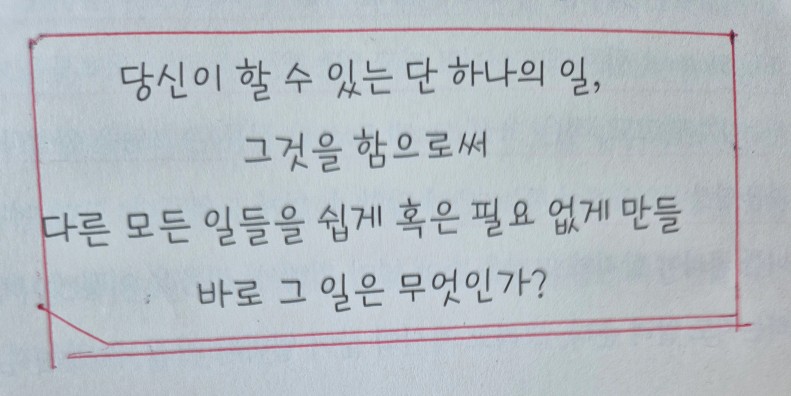 당신이 할 수 있는 단 하나의 일,
그것을 함으로써
다른 모든 일들을 쉽게 혹은 필요 없게 만들
바로 그 일은 무엇인가?